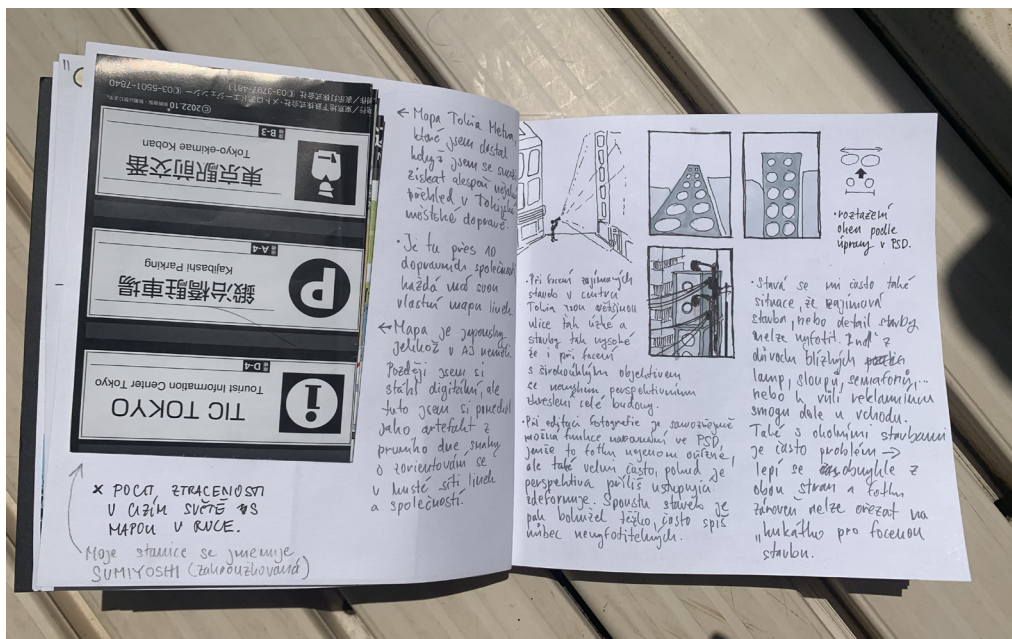 発行／東京地下鉄株式会社・メトロアドエージェンシー ✆03-5501-7840
ⓒ2022.10
B-3
東京駅前交番
Tokyo-ekimae Koban
A-4
鍛冶橋駐車場
Kajibashi Parking
P
D-4
TIC TOKYO
Tourist Information Center Tokyo
i
× POCIT ZTRACENOSTI
V CIZÍM SVĚTĚ S
MAPOU V RUCE.
Moje stanice se jmenuje
SUMIYOSHI (zakroužkovaná)
← Mapa Tokia Metra,
které jsem dostal
když jsem se snažil
získat alespoň nějaký
přehled v Tokijské
městské dopravě.
• Je tu přes 10
dopravních společností
každá má svou
vlastní mapu linek
← Mapa je japonsky
jelikož v AJ neměli.
Později jsem si
stáhl digitální, ale
tuto jsem si ponechal
jako artefakt z
prvního dne snahy
o zorientování se
v husté síti linek
a společností.
• roztažení
oken podle
úpravy v PSD.
• Při focení zajímavých
staveb v centru
Tokia jsou většinou
ulice tak úzké a
stavby tak vysoké
že i při focení
s širokoúhlým objektivem
se nevyhnu perspektivnímu
zkreslení celé budovy.
• Při editaci fotografie je samozřejmě
možná funkce narovnání ve PSD,
jenže to fotku nejenom ořízne,
ale také velmi často, pokud je
perspektiva příliš ustupující
zdeformuje. Spoustu staveb je
pak bohužel těžko, často spíš
vůbec nevyfotitelných.
• Stává se mi často také
situace, že zajímavá
stavba, nebo detail stavby
nelze vyfotit. Buď z
důvodu blízkých
lamp, sloupů, semaforů,...
nebo kvůli reklamnímu
smogu dole u vchodu.
Také s okolními stavbami
je často problém →
lepí se obvykle z
obou stran a fotku
zároveň nelze ořezat na
pro focenou
stavbu.